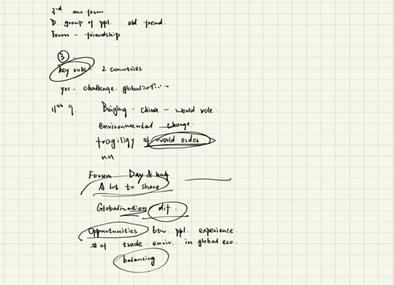 3rd our forum
D. group of ppl. old friend.
Forum - friendship
③
key role 2 countries
yrs. challenge. globalizati...
11th 9.
Beijing - China - world role
environmental change
fragility of world order
Forum Day &
A lot to share
Globalization dif.
Opportunities btw. ppl. experience
# of trade envir. in global eco.
balancing